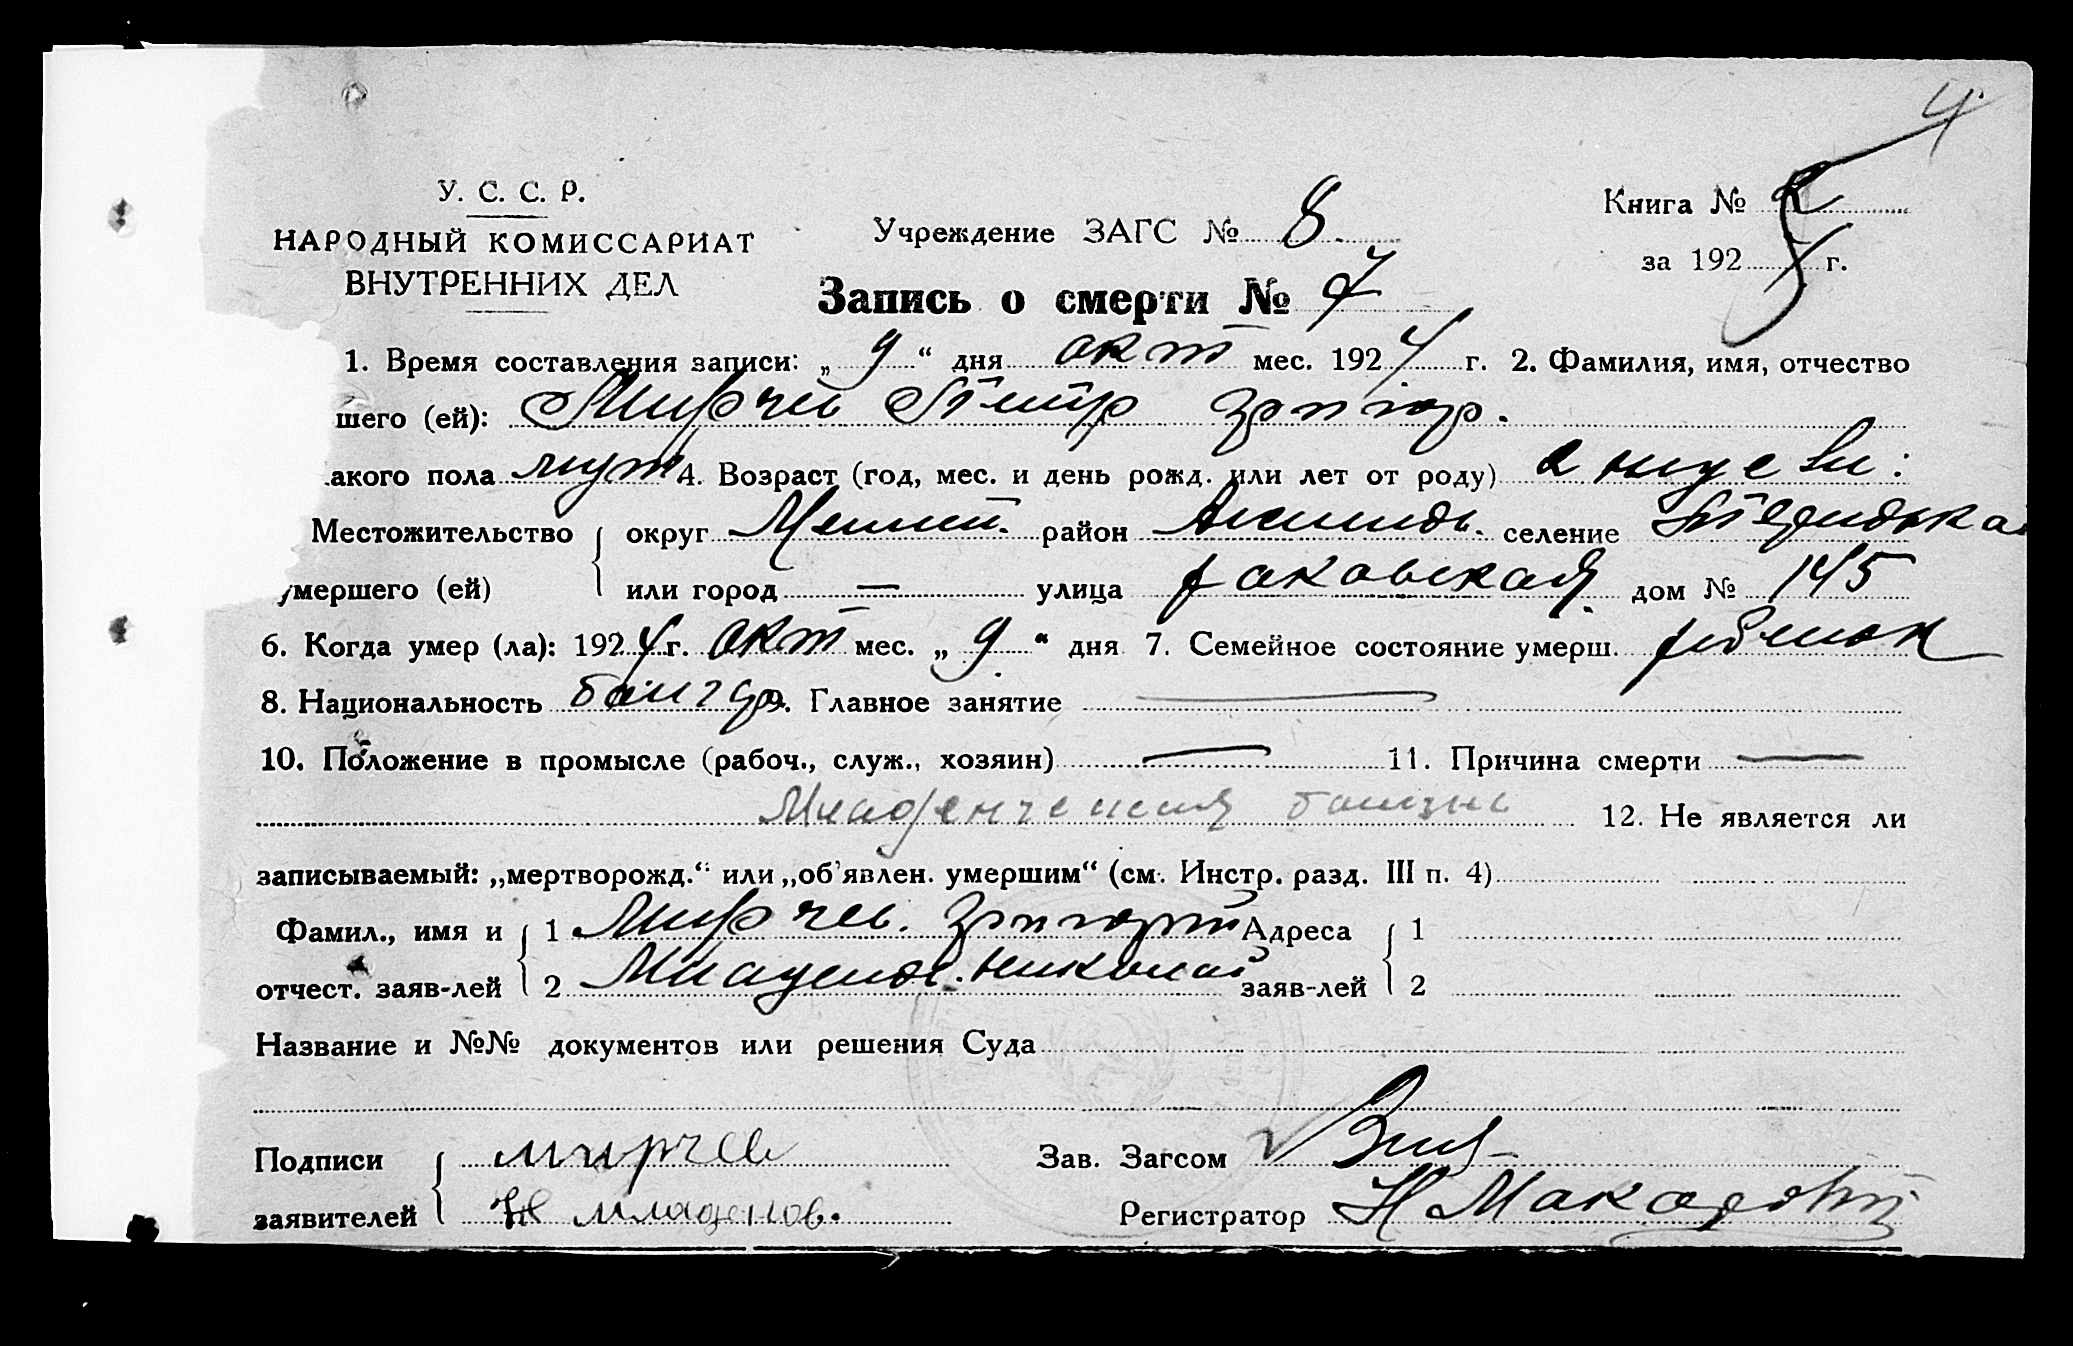 4.
У. С. С. Р.
НАРОДНЫЙ КОМИССАРИАТ
ВНУТРЕННИХ ДЕЛ
Учреждение ЗАГС № 8.
Книга №
за 192 г.
Запись о смерти № 7
1. Время составления записи: „ 9 “ дня окт мес. 1924 г. 2. Фамилия, имя, отчество
шего (ей): Мирчев Петр Григор.
акого пола муж 4. Возраст (год, мес. и день рожд. или лет от роду)
Местожительство { округ район селение
умершего (ей) или город — улица раковская дом № 145
6. Когда умер (ла): 1924 г. окт мес. „ 9 “ дня 7. Семейное состояние умерш. ребенок
8. Национальность болгар. 9. Главное занятие —
10. Положение в промысле (рабоч., служ., хозяин) — 11. Причина смерти —
Младенческая болезнь 12. Не является ли
записываемый: „мертворожд.“ или „об'явлен. умершим“ (см. Инстр. разд. III п. 4)
Фамил., имя и { 1 Мирчев. Григорий Адреса { 1
отчест. заяв-лей 2 Младенов. Николай заяв-лей 2
Название и №№ документов или решения Суда
Подписи { мирчев Зав. Загсом
заявителей Н младенов. Регистратор Н Макаров